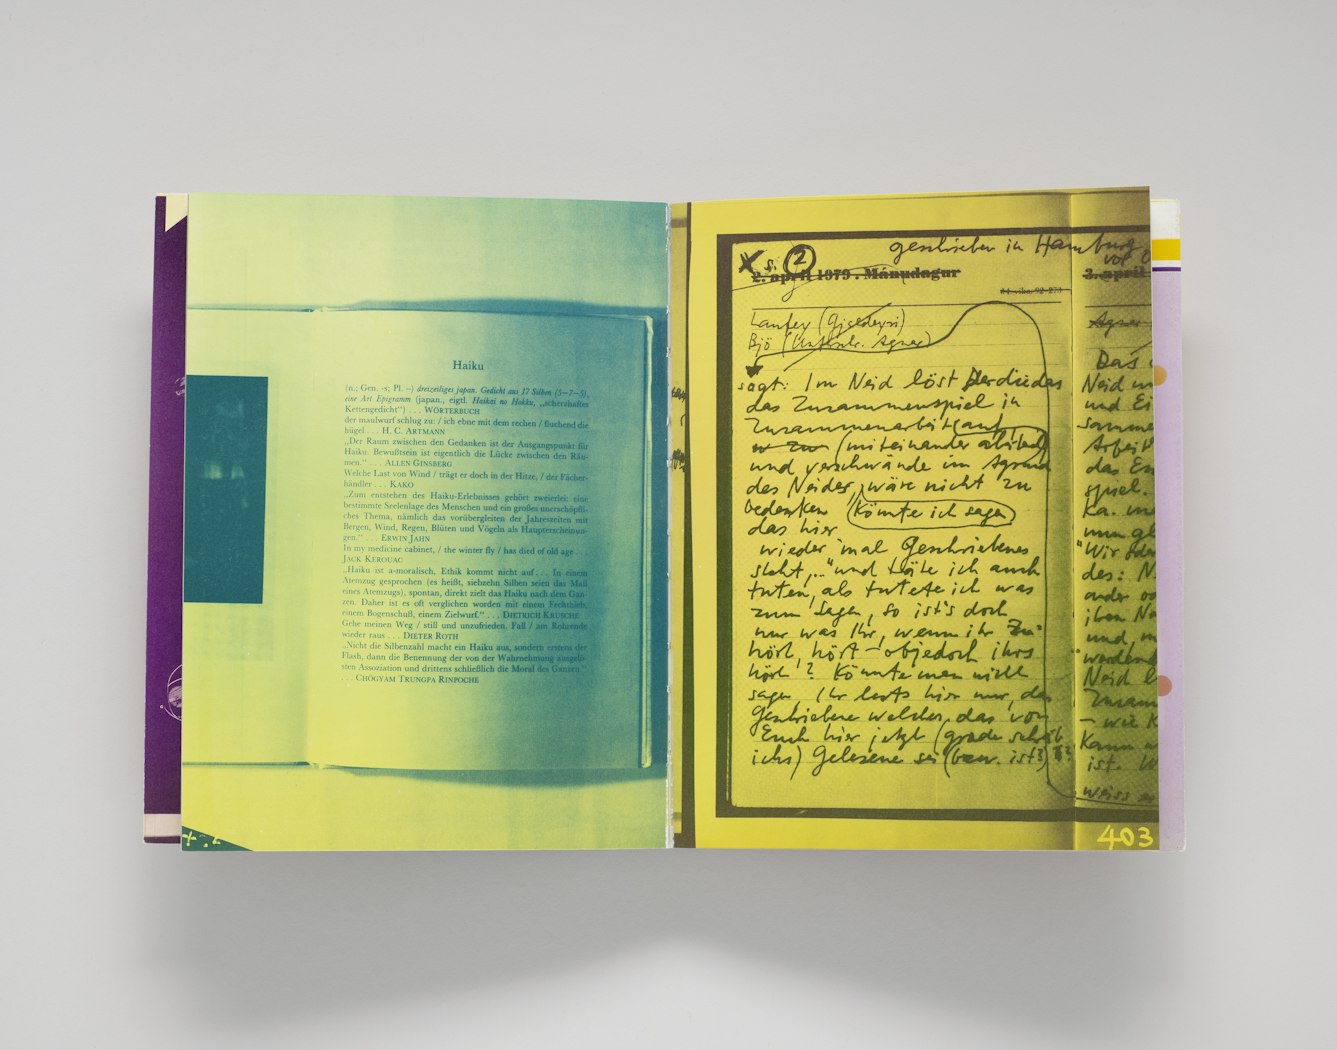 Haiku
(n.; Gen. -s; Pl. –) dreizeiliges japan. Gedicht aus 17 Silben (5–7–5),
eine Art Epigramm (japan., eigtl. Haikai no Hokku, „scherzhaftes
Kettengedicht“) . . . WÖRTERBUCH
der maulwurf schlug zu: / ich ebne mit dem rechen / fluchend die
hügel . . . H. C. ARTMANN
„Der Raum zwischen den Gedanken ist der Ausgangspunkt für
Haiku. Bewußtsein ist eigentlich die Lücke zwischen den Räu-
men.“ . . . ALLEN GINSBERG
Welche Last von Wind / trägt er doch in der Hitze, / der Fächer-
händler . . . KAKO
„Zum entstehen des Haiku-Erlebnisses gehört zweierlei: eine
bestimmte Seelenlage des Menschen und ein großes unerschöpfli-
ches Thema, nämlich das vorübergleiten der Jahreszeiten mit
Bergen, Wind, Regen, Blüten und Vögeln als Haupterscheinun-
gen.“ . . . ERWIN JAHN
In my medicine cabinet, / the winter fly / has died of old age . . .
JACK KEROUAC
„Haiku ist a-moralisch, Ethik kommt nicht auf . . . In einem
Atemzug gesprochen (es heißt, siebzehn Silben seien das Maß
eines Atemzugs), spontan, direkt zielt das Haiku nach dem Gan-
zen. Daher ist es oft verglichen worden mit einem Fechthieb,
einem Bogenschuß, einem Zielwurf.“ . . . DIETRICH KRUSCHE
Gehe meinen Weg / still und unzufrieden. Fall / am Rohrende
wieder raus . . . DIETER ROTH
„Nicht die Silbenzahl macht ein Haiku aus, sondern erstens der
Flash, dann die Benennung der von der Wahrnehmung ausgelö-
sten Assoziation und drittens schließlich die Moral des Ganzen.“
. . . CHÖGYAM TRUNGPA RINPOCHE
geschrieben in Hamburg
vor
X s. 2
2. apríl 1979 . Mánudagur
3. apríl
Laufey
Bjö
sagt: Im Neid löst
das Zusammenspiel in
Zusammenarbeit auf,
(miteinander
und verschwände im
des Neides, wäre nicht zu
bedenken (könnte ich sagen)
das hier
wieder 'mal Geschriebenes
steht, ..." und täte ich auch
tuten, als tutete ich was
zum Sagen, so ist's doch
nur was Ihr, wenn ihr zu-
hört, hört – objedoch ihrs
hört? Könnte man nicht
sagen Ihr lests hier nur, das
Geschriebene welches das von
Euch hier jetzt (grade schrieb
ichs) Gelesene sei (bzw. ist)
Das
Neid
und
Arbeit
das
spiel.
"Wir
des:
oder
und,
Neid
– wie
Kann
ist.
weiss
403